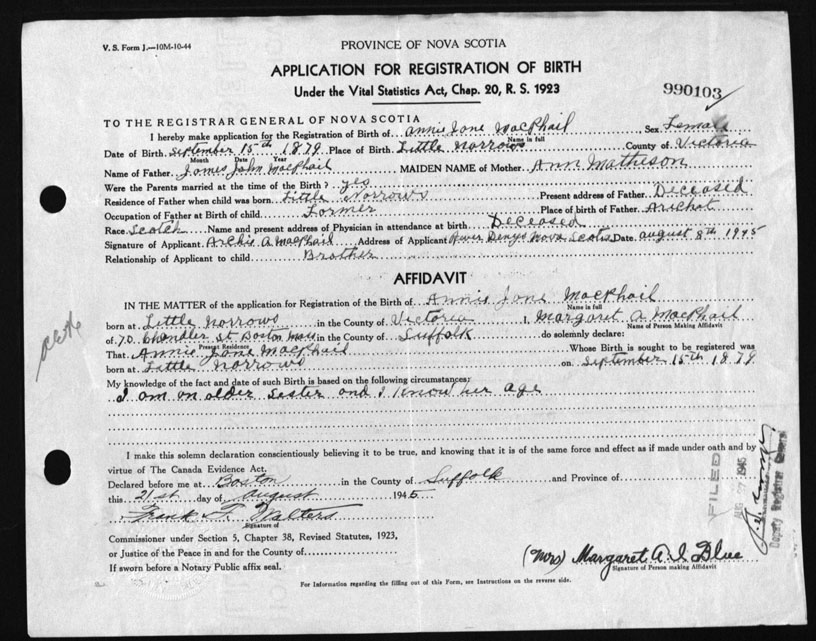 V. S. Form J.—10M-10-44
PROVINCE OF NOVA SCOTIA
APPLICATION FOR REGISTRATION OF BIRTH
Under the Vital Statistics Act, Chap. 20, R. S. 1923
990103
TO THE REGISTRAR GENERAL OF NOVA SCOTIA
I hereby make application for the Registration of Birth of Annie Jane MacPhail Sex Female
Name in full
Date of Birth September 15th 1879 Place of Birth Little Narrows County of Victoria
Month Date Year
Name of Father James John MacPhail MAIDEN NAME of Mother Ann Matheson
Were the Parents married at the time of the Birth? yes
Residence of Father when child was born Little Narrows Present address of Father Deceased
Occupation of Father at Birth of child Farmer Place of birth of Father Arichat
Race Scotch Name and present address of Physician in attendance at birth Deceased
Signature of Applicant Archie A MacPhail Address of Applicant River Denys Nova Scotia Date August 8th 1945
Relationship of Applicant to child Brother
AFFIDAVIT
IN THE MATTER of the application for Registration of the Birth of Annie Jane MacPhail
Name in full
born at Little Narrows in the County of Victoria I, Margaret A MacPhail
Name of Person Making Affidavit
of 70 Chandler St Boston Mass in the County of Suffolk do solemnly declare:
Present Residence
That Annie Jane MacPhail Whose Birth is sought to be registered was
born at Little Narrows on September 15th 1879
My knowledge of the fact and date of such Birth is based on the following circumstances:
I am an older sister and I know her age
I make this solemn declaration conscientiously believing it to be true, and knowing that it is of the same force and effect as if made under oath and by
virtue of The Canada Evidence Act.
Declared before me at Boston in the County of Suffolk and Province of
this 21st day of August 1945
Frank F. Walters
Signature of
Commissioner under Section 5, Chapter 38, Revised Statutes, 1923,
or Justice of the Peace in and for the County of
If sworn before a Notary Public affix seal.
(Mrs) Margaret A. I Blue
Signature of Person making Affidavit
For Information regarding the filling out of this Form, see Instructions on the reverse side.
FILED
1945
Deputy Registrar General